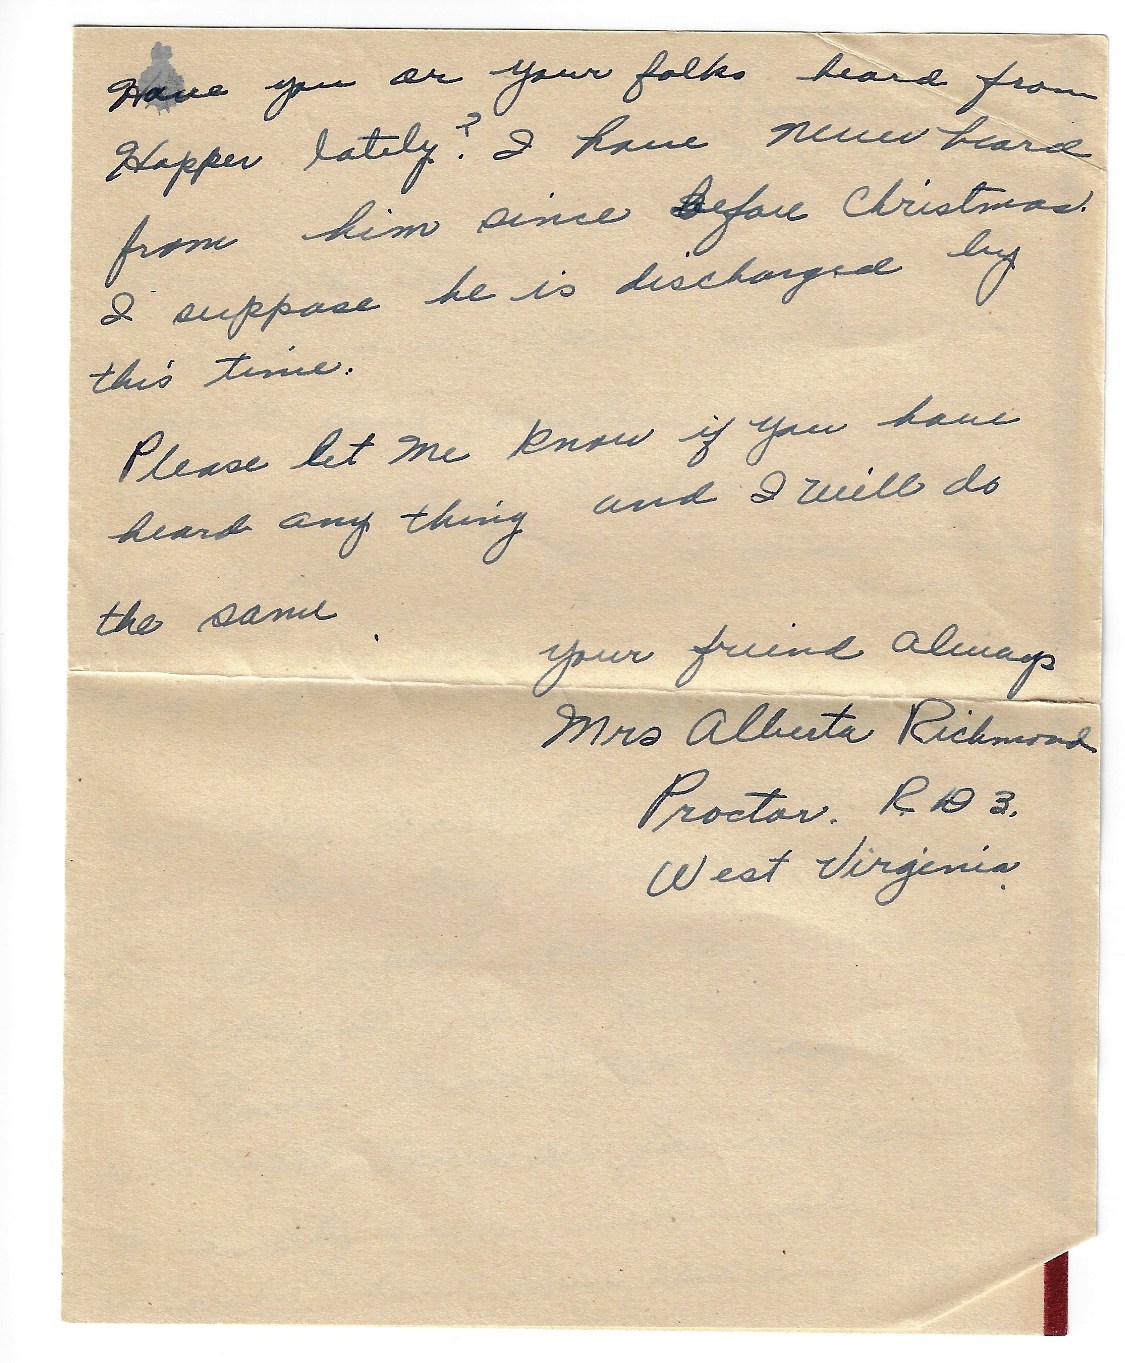 Have you or your folks heard from
Hopper lately? I have never heard
from him since Before Christmas.
I suppose he is discharged by
this time.
Please let me know if you have
heard any thing and I will do
the same.
your friend always
Mrs Alberta Richmond
Proctor. R.D 3.
West Virginia.